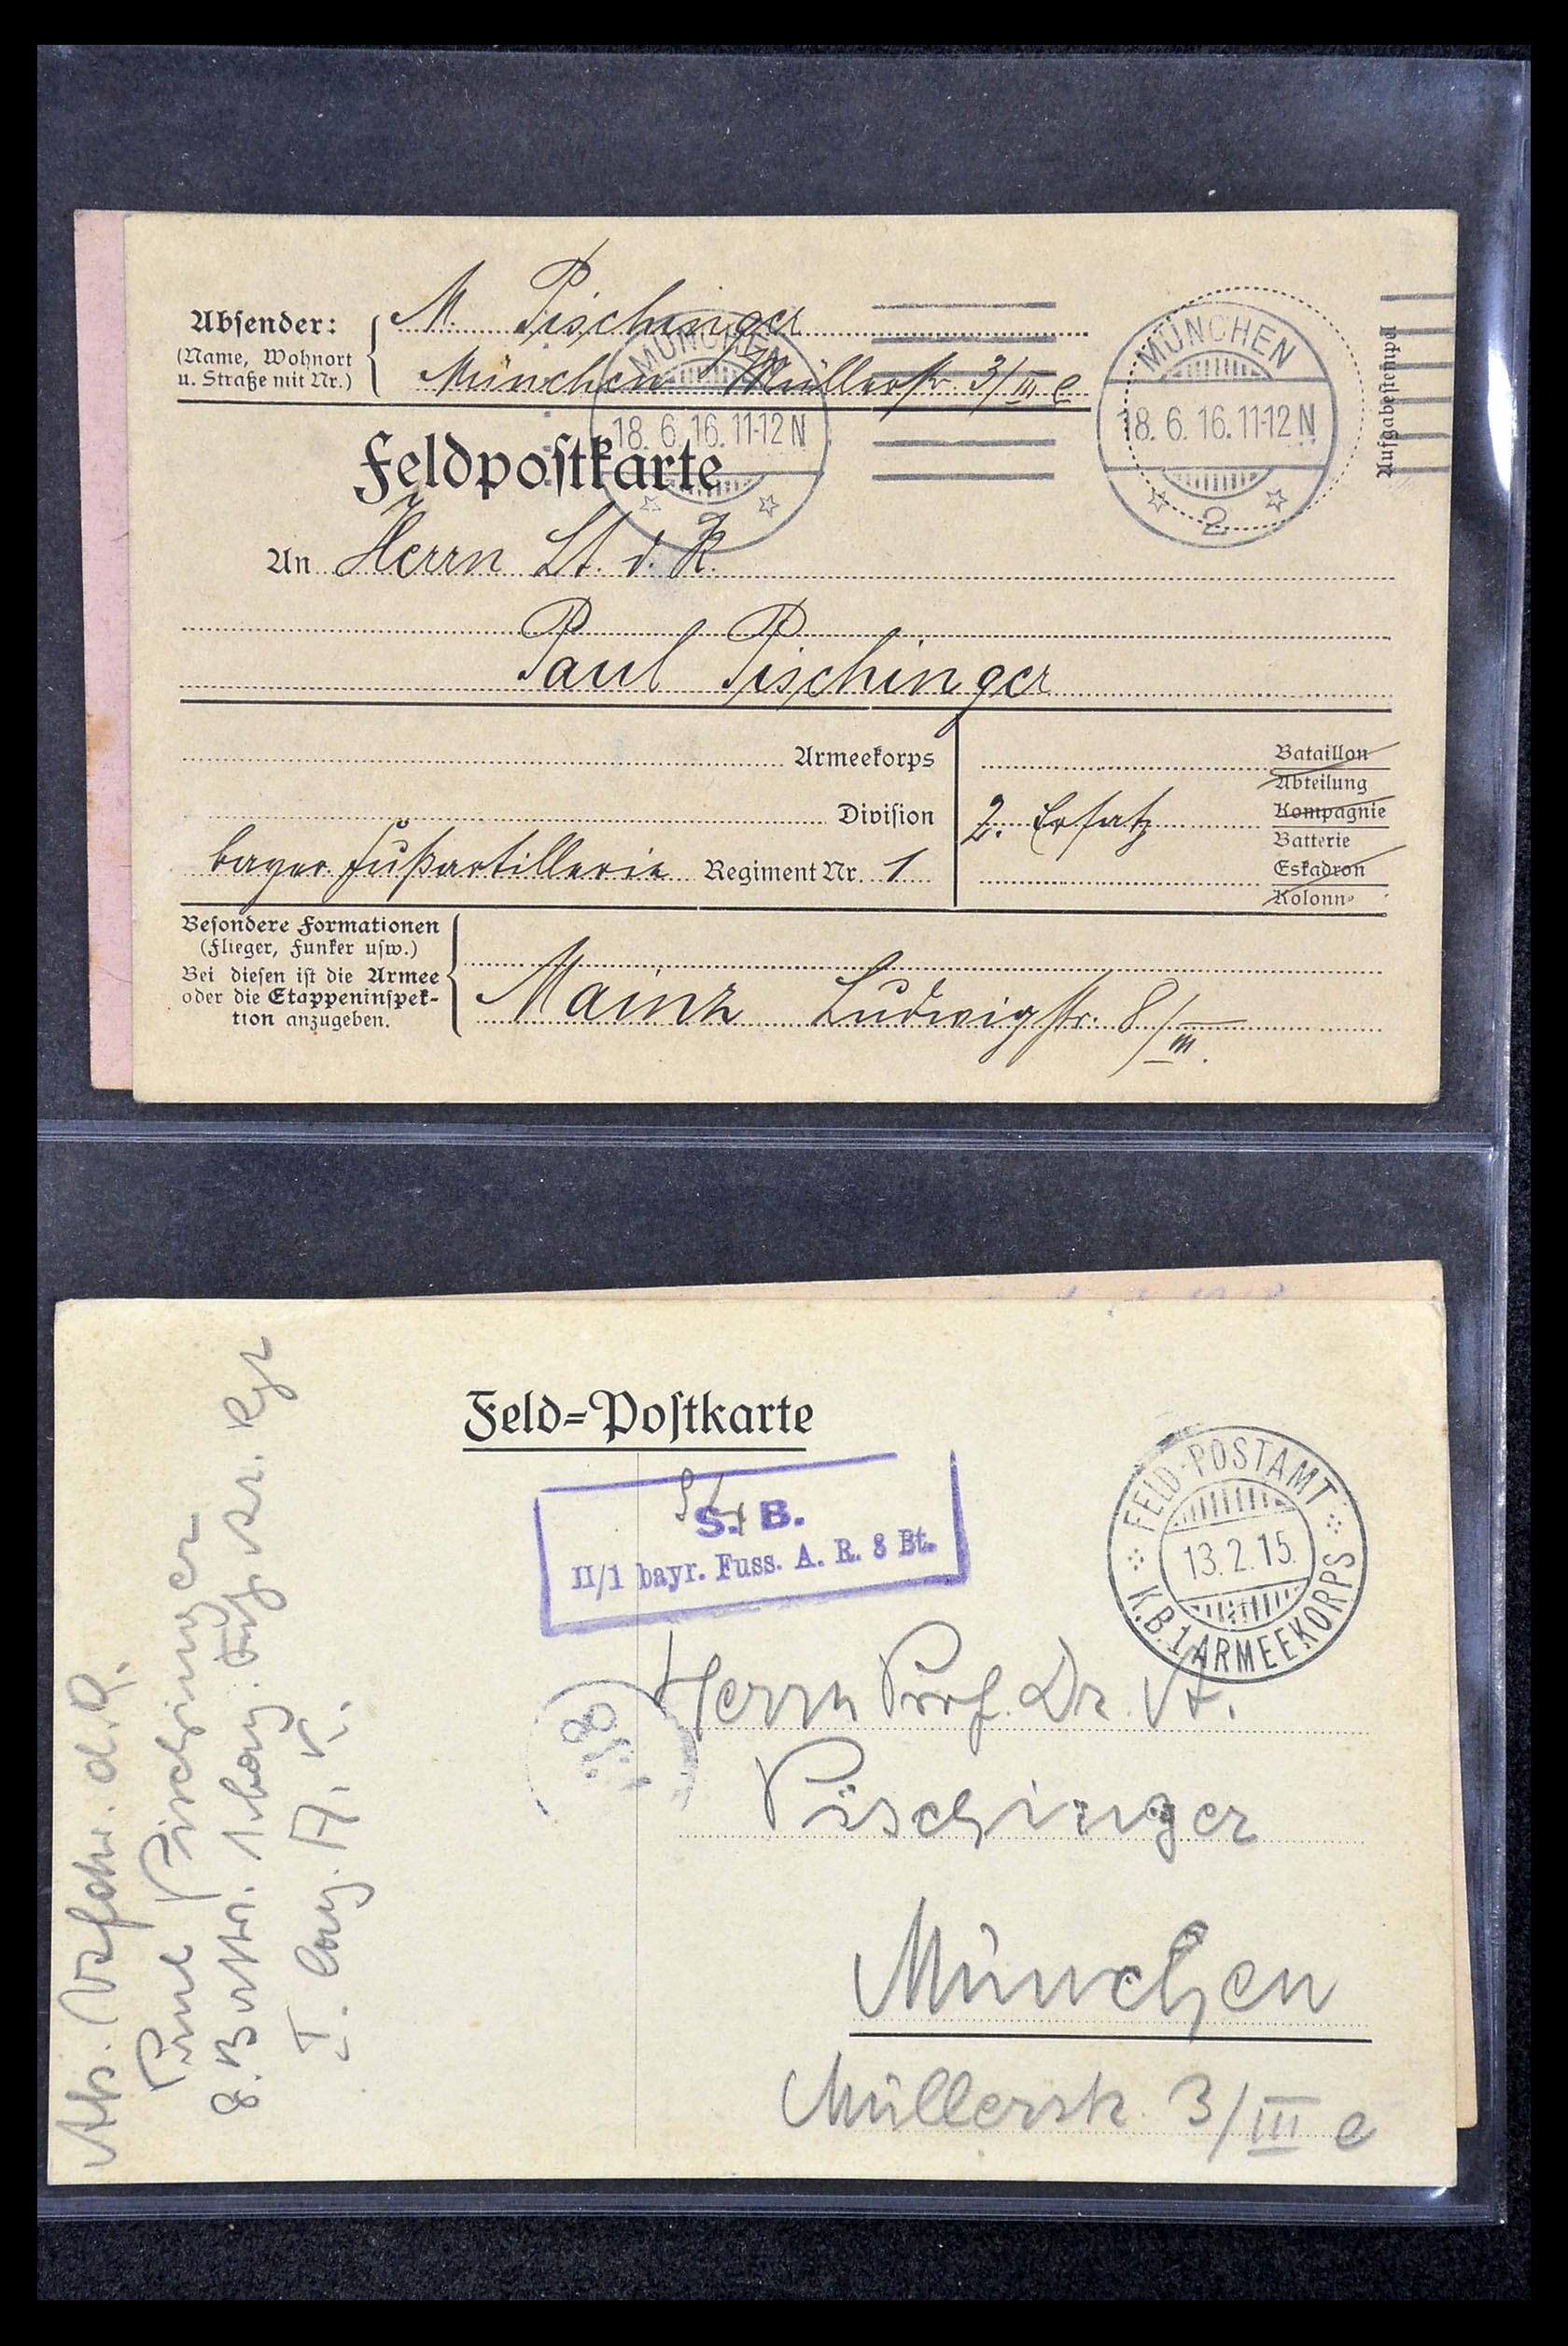 Absender:
(Name, Wohnort
u. Straße mit Nr.)
M. Pischinger
München Müllerstr. 3/III e
MÜNCHEN
18. 6. 16. 11-12 N
MÜNCHEN
18. 6. 16. 11-12 N
2
Aufgabestempel
Feldpostkarte
An Herrn Lt. d. R.
Paul Pischinger
Armeekorps
Division
bayer. Fußartillerie Regiment Nr. 1
2. Ersatz
Bataillon
Abteilung
Kompagnie
Batterie
Eskadron
Kolonne
Besondere Formationen
(Flieger, Funker usw.)
Bei diesen ist die Armee
oder die Etappeninspek-
tion anzugeben.
Mainz Ludwigstr. 8/III.
Feld=Postkarte
S. B.
II/1 bayr. Fuss. A. R. 8 Bt.
FELD-POSTAMT
13.2.15.
K.B.1.ARMEEKORPS
Herrn Prof. Dr. A.
Pischinger
München
Müllerstr. 3/III e
Abs. Vzfchw. d. R.
Paul Pischinger
8. Battr. 1. bay. Fußartr. Rgt
I. bay. A. K.